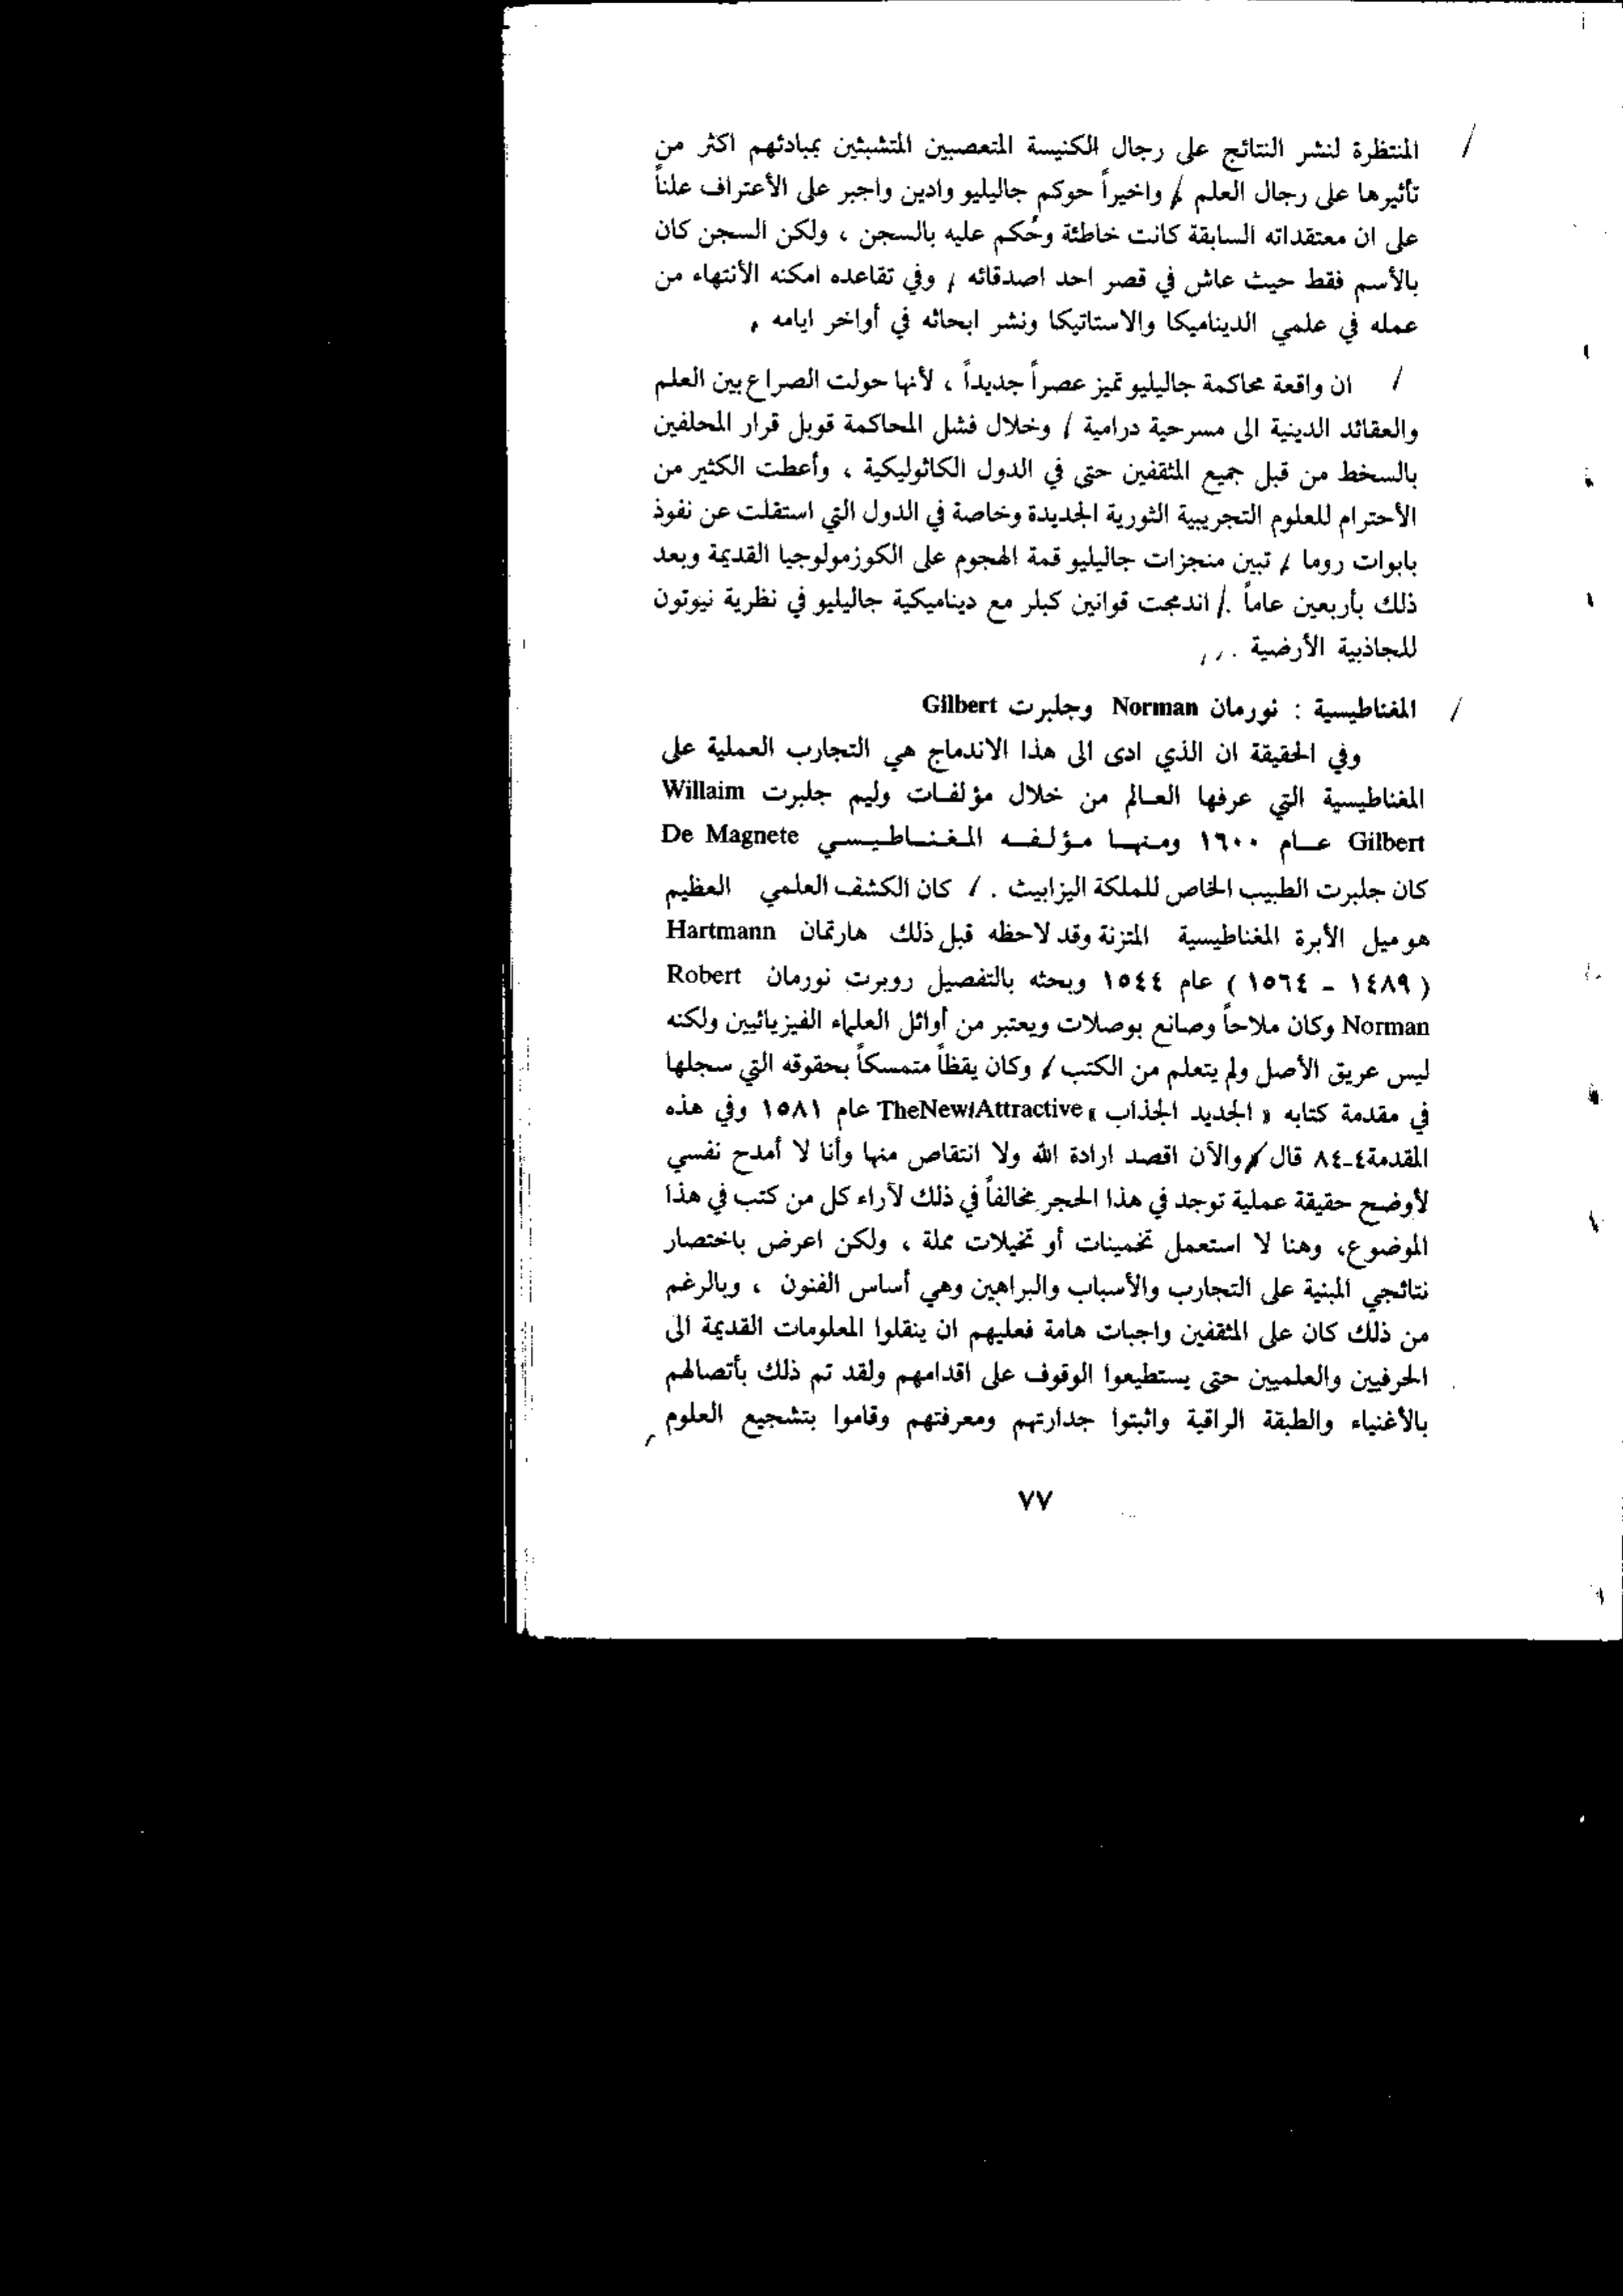 المنتظرة لنشر النتائج على رجال الكنيسة المتعصبين المتشبثين بمبادئهم اكثر من
تأثيرها على رجال العلم / واخيراً حوكم جاليليو وادين واجبر على الأعتراف علناً
على ان معتقداته السابقة كانت خاطئة وحُكم عليه بالسجن ، ولكن السجن كان
بالأسم فقط حيث عاش في قصر احد اصدقائه / وفي تقاعده امكنه الأنتهاء من
عمله في علمي الديناميكا والاستاتيكا ونشر ابحاثه في أواخر ايامه .
/ ان واقعة محاكمة جاليليو تميز عصراً جديداً ، لأنها حولت الصراع بين العلم
والعقائد الدينية الى مسرحية درامية / وخلال فشل المحاكمة قوبل قرار المحلفين
بالسخط من قبل جميع المثقفين حتى في الدول الكاثوليكية ، وأعطت الكثير من
الأحترام للعلوم التجريبية الثورية الجديدة وخاصة في الدول التي استقلت عن نفوذ
بابوات روما / تبين منجزات جاليليو قمة الهجوم على الكوزمولوجيا القديمة وبعد
ذلك بأربعين عاماً ./ اندمجت قوانين كبلر مع ديناميكية جاليليو في نظرية نيوتون
للجاذبية الأرضية .
/ المغناطيسية : نورمان Norman وجلبرت Gilbert
وفي الحقيقة ان الذي ادى الى هذا الاندماج هي التجارب العملية على
المغناطيسية التي عرفها العالم من خلال مؤلفات وليم جلبرت Willaim
Gilbert عام ١٦٠٠ ومنها مؤلفه المغناطيسي De Magnete
كان جلبرت الطبيب الخاص للملكة اليزابيث . / كان الكشف العلمي العظيم
هو ميل الأبرة المغناطيسية المتزنة وقد لاحظه قبل ذلك هارتمان Hartmann
( ١٤٨٩ - ١٥٦٤ ) عام ١٥٤٤ وبحثه بالتفصيل روبرت نورمان Robert
Norman وكان ملاحاً وصانع بوصلات ويعتبر من أوائل العلماء الفيزيائيين ولكنه
ليس عريق الأصل ولم يتعلم من الكتب / وكان يقظاً متمسكاً بحقوقه التي سجلها
في مقدمة كتابه « الجديد الجذاب » TheNew/Attractive عام ١٥٨١ وفي هذه
المقدمة٤-٨٤ قال / والآن اقصد ارادة الله ولا انتقاص منها وأنا لا أمدح نفسي
لأوضح حقيقة عملية توجد في هذا الحجر مخالفاً في ذلك لآراء كل من كتب في هذا
الموضوع، وهنا لا استعمل تخمينات أو تخيلات مملة ، ولكن اعرض باختصار
نتائجي المبنية على التجارب والأسباب والبراهين وهي أساس الفنون ، وبالرغم
من ذلك كان على المثقفين واجبات هامة فعليهم ان ينقلوا المعلومات القديمة الى
الحرفيين والعلميين حتى يستطيعوا الوقوف على اقدامهم ولقد تم ذلك بأتصالهم
بالأغنياء والطبقة الراقية واثبتوا جدارتهم ومعرفتهم وقاموا بتشجيع العلوم
٧٧